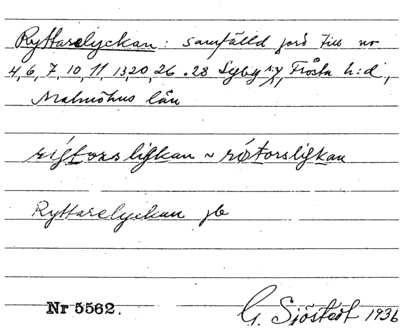 Ryttarelyckan: samfälld jord till nr
4, 6, 7, 10, 11, 1320, 26, 28 Igby sn, Frosta h:d,
Malmöhus län
Ryttarelyckan jb
Nr 5562.
G. Sjöstedt 1936